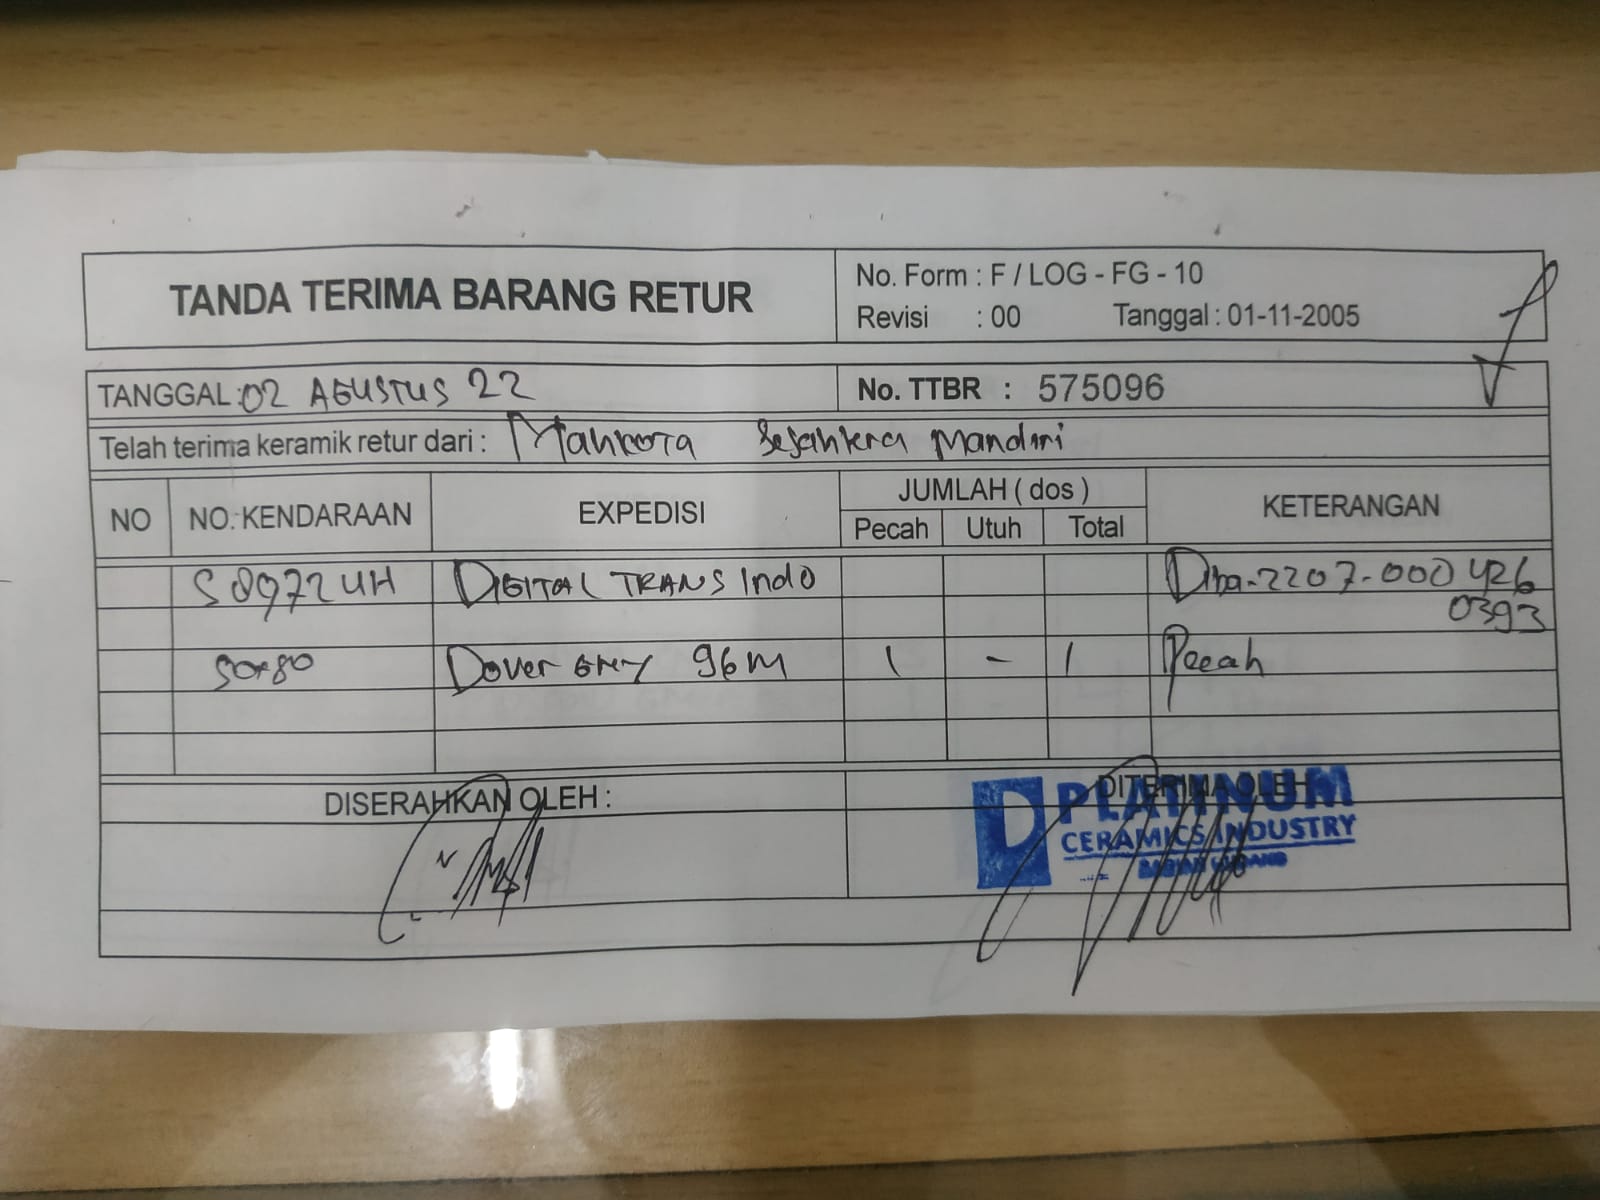 TANDA TERIMA BARANG RETUR
No. Form : F / LOG - FG - 10
Revisi : 00 Tanggal : 01-11-2005
TANGGAL : 02 AGUSTUS 22
No. TTBR : 575096
Telah terima keramik retur dari : Mahkota Sejahtera Mandiri
NO NO. KENDARAAN EXPEDISI JUMLAH ( dos ) KETERANGAN
Pecah Utuh Total
S 8972 UH DIGITAL TRANS Indo
-2207-000426
0393
50x80 Dover GREY 96M 1 - 1 Pecah
DISERAHKAN OLEH :
DITERIMA OLEH
PLATINUM
CERAMICS INDUSTRY